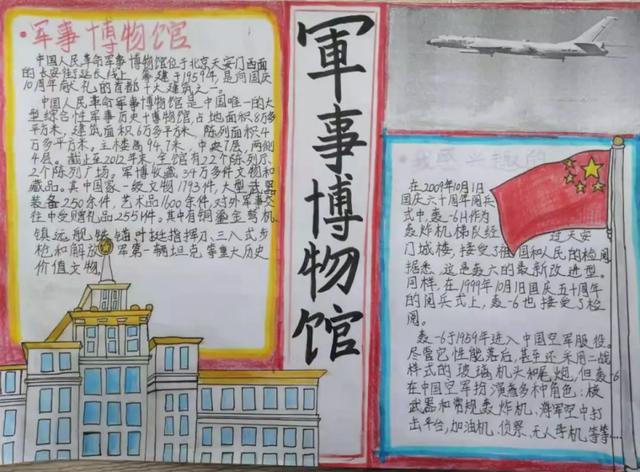 军事博物馆
中国人民革命军事博物馆位于北京天安门西面
的长安街延长线上,筹建于1959年,是向国庆
10周年献礼的首都十大建筑之一。
中国人民革命军事博物馆是中国唯一的大
型综合性军事历史博物馆,占地面积8万多
平方米,建筑面积6万多平方米,陈列面积4
万多平方米。主楼高94.7米,中央7层,两侧
4层。截止至2012年末,全馆有22个陈列厅、
2个陈列广场。军博收藏34万多件文物和
藏品。其中国家一级文物1793件,大型武器
装备250余件,艺术品1600余件,对外军事交
往中受赠礼品2551件。其中有铜
镇远舰铁锚 叶挺指挥刀、三八式步
枪和解放军第一辆坦克,等重大历史
价值文物
軍事博物馆
我感兴趣的
在2009年10月1日
国庆六十周年阅兵
式中,轰-6H作为
轰炸机梯队经过天安
门城楼,接受了祖国和人民的检阅
据悉,这是轰六的最新改进型。
同样,在1999年10月1日国庆五十周年
的阅兵式上,轰-6也接受了检
阅。
轰-6于1959年进入中国空军服役。
尽管它性能落后,甚至还采用二战
样式的玻璃机头和尾炮,但轰-6
在中国空军扮演着多种角色:核
武器和常规轰炸机,海军空中打
击平台,加油机,侦察,无人手机,等等…